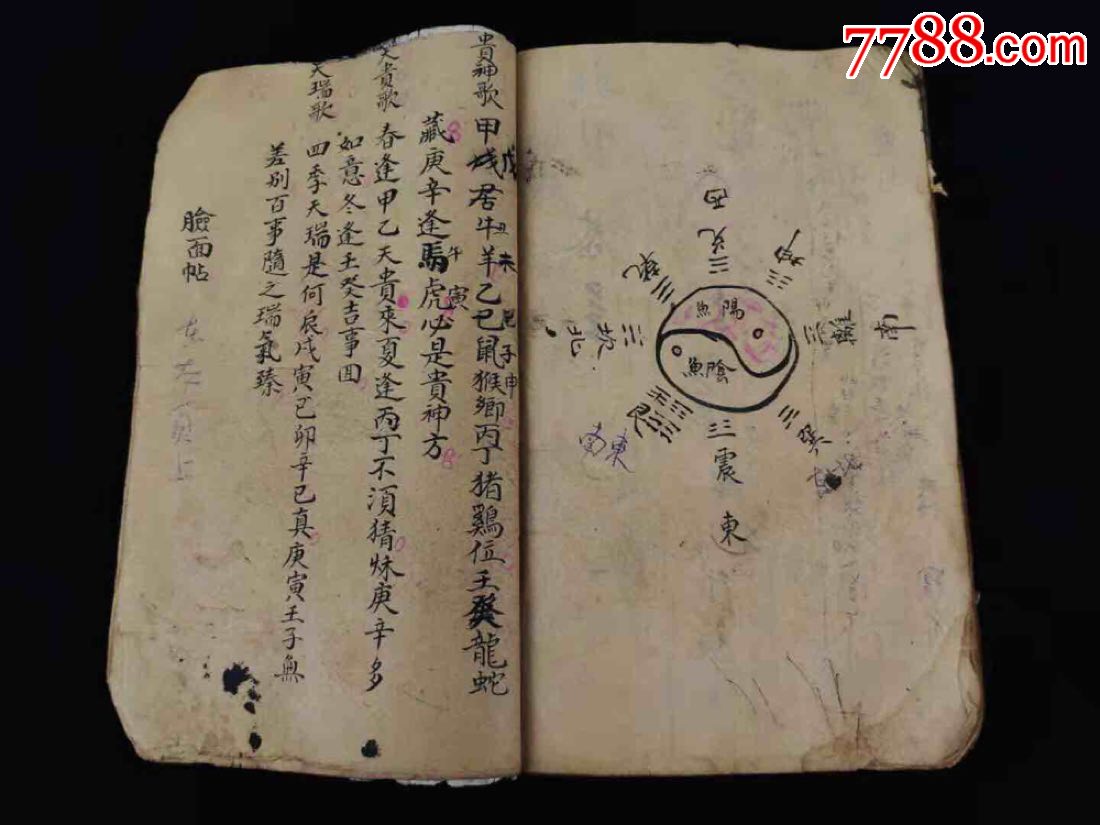 7788.com
西
兌
坤
乾
離
南
坎
北
陽
魚
陰
魚
艮
東南
巽
震
東
貴神歌
甲戊居牛羊乙己鼠猴鄉丙丁猪鷄位壬癸龍蛇
丑未
子申
藏庚辛逢馬虎必是貴神方
午寅
貴歌
春逢甲乙天貴來夏逢丙丁不須猜秌庚辛多
如意冬逢壬癸吉事囬
天瑞歌
四季天瑞是何辰戊寅己卯辛巳真庚寅壬子無
差別百事隨之瑞氣臻
臉面帖